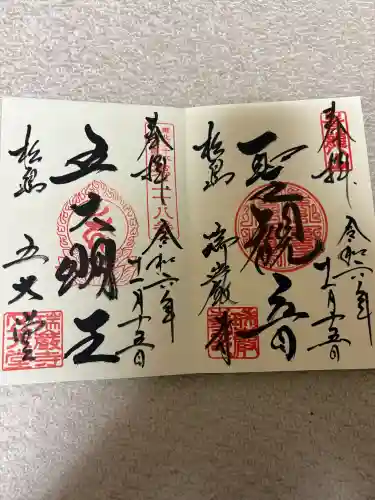 奉拝
令和六年
十一月十五日
聖観音
松島
瑞巌寺
奉拝
令和六年
十一月十五日
五大明王
松島
五大堂
瑞巌寺
五大堂